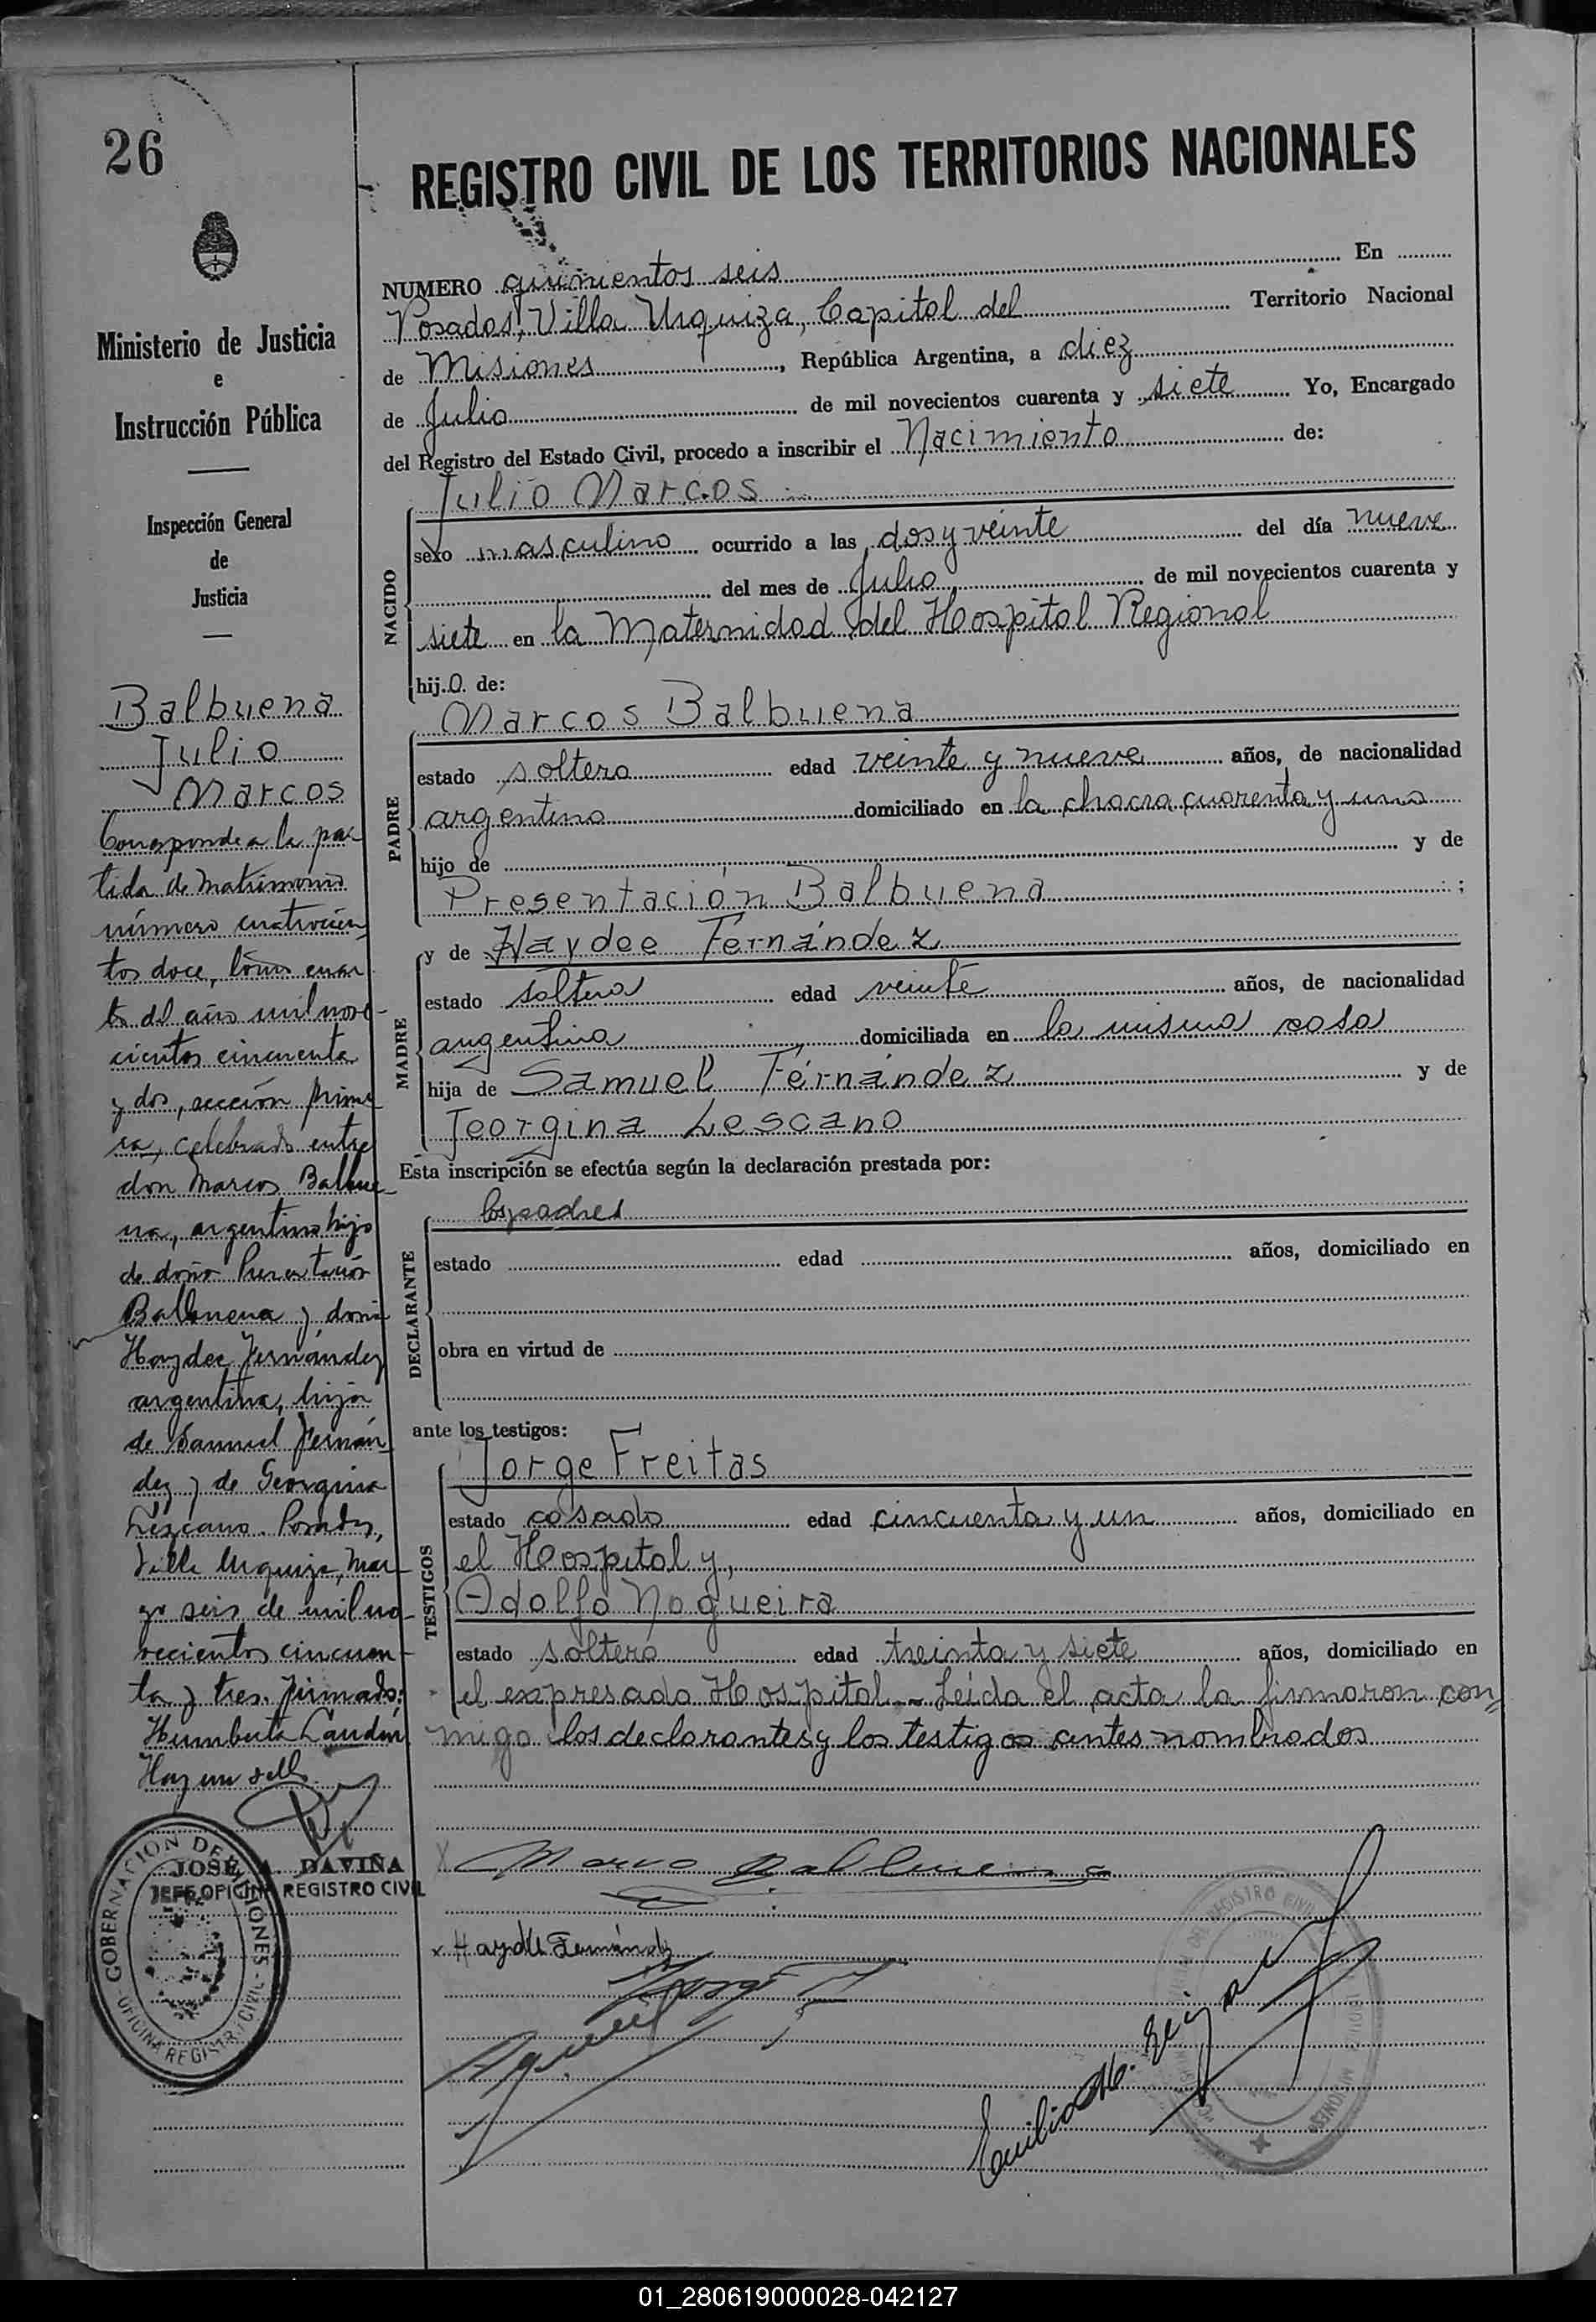 26
REGISTRO CIVIL DE LOS TERRITORIOS NACIONALES
Ministerio de Justicia
e
Instrucción Pública
Inspección General
de
Justicia
Balbuena
Julio
Marcos
Corresponde a la par
tida de Matrimonio
número cuatrocien
tos doce, tomo cuar
to del año mil nove-
cientos cincuenta
y dos, sección prime
ra, celebrado entre
don Marcos Balbue-
na, argentino hijo
de doña Presentación
Balbuena y doña
Haydee Fernández
argentina, hija
de Samuel Fernán
dez y de Georgina
Lezcano. Posadas,
Villa Urquiza, Mar-
zo seis de mil no-
vecientos cincuen-
ta y tres. Firmado:
Humberto
Hay un sello
JOSÉ A. DAVIÑA
JEFE OFICINA REGISTRO CIVIL
GOBERNACION DE MISIONES - OFICINA REGISTRO CIVIL
NUMERO quinientos seis En
Posadas, Villa Urquiza, Capital del Territorio Nacional
de Misiones, República Argentina, a diez
de Julio de mil novecientos cuarenta y siete Yo, Encargado
del Registro del Estado Civil, procedo a inscribir el Nacimiento de:
Julio Marcos
NACIDO
sexo masculino ocurrido a las dos y veinte del día nueve
del mes de Julio de mil novecientos cuarenta y
siete en la Maternidad del Hospital Regional
hijo de:
PADRE
Marcos Balbuena
estado soltero edad veinte y nueve años, de nacionalidad
argentino domiciliado en la chacra cuarenta y uno
hijo de y de
Presentación Balbuena ;
MADRE
y de Haydee Fernández
estado soltera edad veinte años, de nacionalidad
argentina domiciliada en la misma casa
hija de Samuel Fernández y de
Jeorgina Lescano
Esta inscripción se efectúa según la declaración prestada por:
DECLARANTE
los padres
estado edad años, domiciliado en
obra en virtud de
ante los testigos:
TESTIGOS
Jorge Freitas
estado casado edad cincuenta y un años, domiciliado en
el Hospital y,
Adolfo Nogueira
estado soltero edad treinta y siete años, domiciliado en
el expresado Hospital -- Leída el acta la firmaron con=
migo los declarantes y los testigos antes nombrados
x Marco Balbuena
x Haydee Fernández
01_280619000028-042127